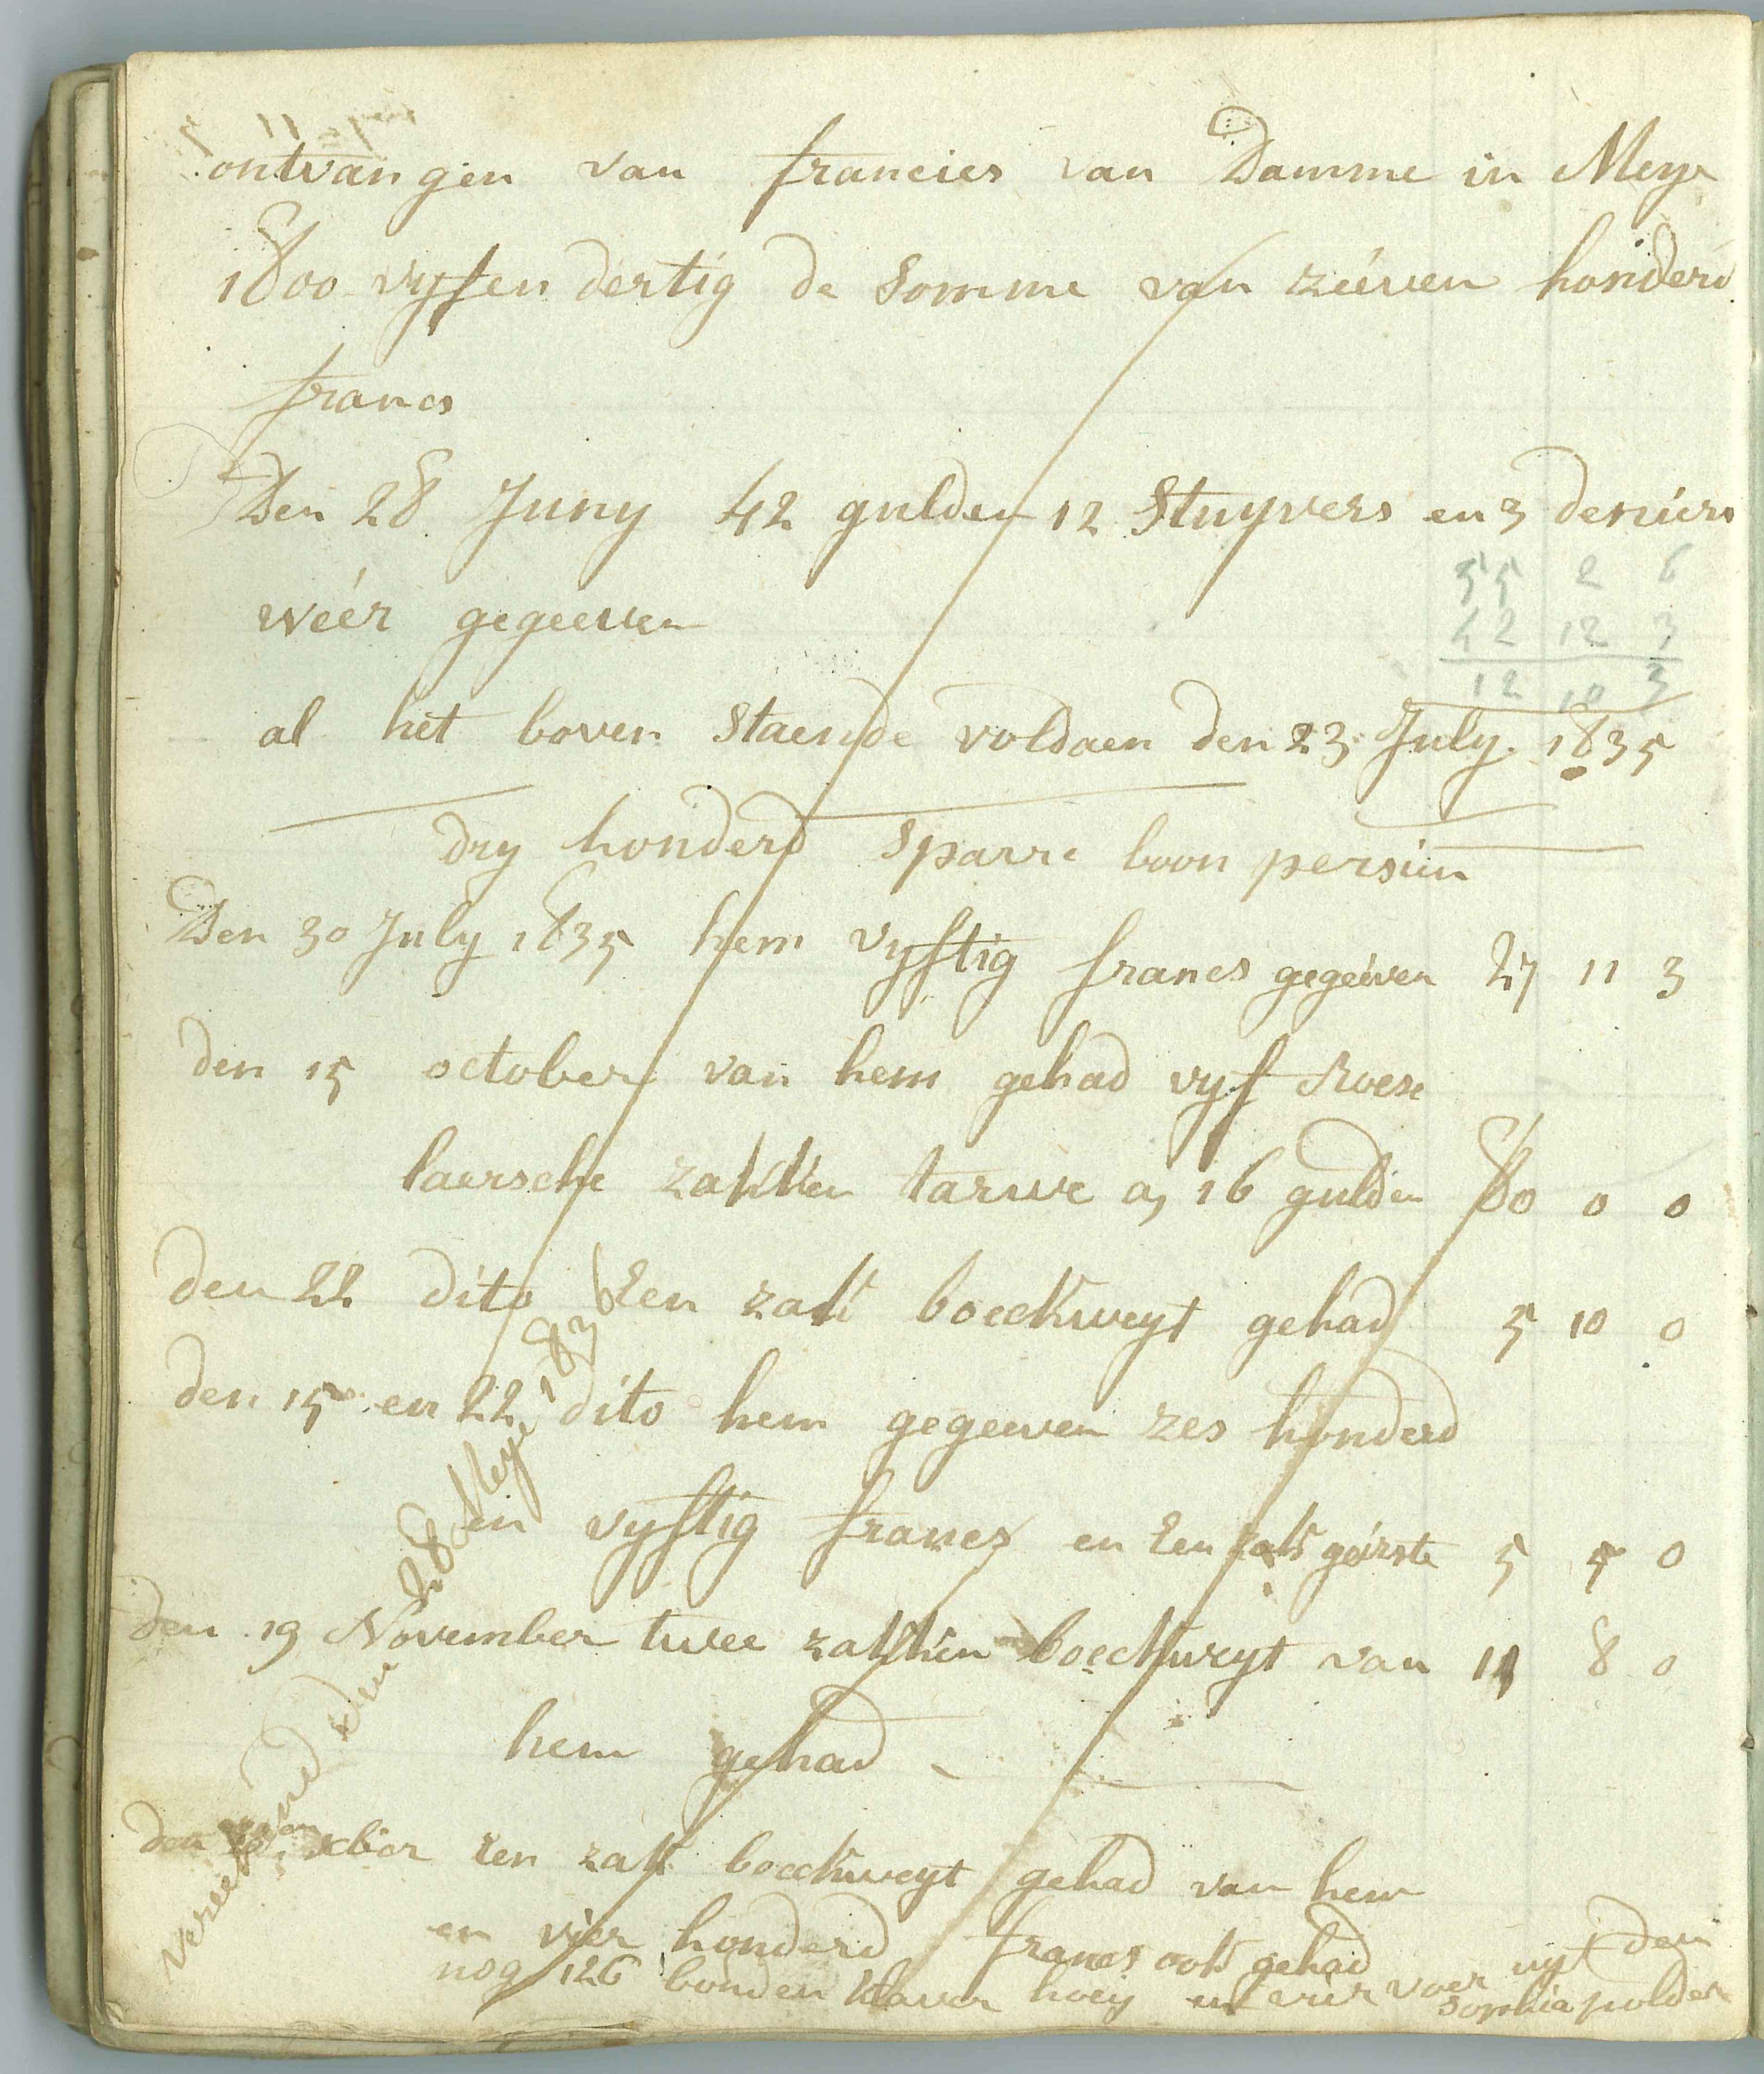 ontvangen van francies van Damme in Meye
1800 vyf en dertig de Somme van zeeven honderd
francs
Den 28 Juny 42 gulden 12 Stuyvers en 3 deniers
55 2 6
weér gegeeven
42 12 3
12 10 3
al het boven Staende voldaen den 23 July 1835
dry honderd Sparre boon persien
Den 30 July 1835 hem vyftig francs gegeéven 27 11 3
den 15 october van hem gehad vyf Roese
laersche zakken tarwe a, 16 gulden 80 0 0
den 22 dito Een zak boeckweyt gehad 5 10 0
den 15 en 22 dito hem gegeeven zes honderd
en vyftig francs en Een zak geérste 5 5 0
den 19 November twee zakken boeckweyt van 11 8 0
hem gehad
den xbior een zak boeckweyt gehad van hem
en vier honderd francs ook gehad
nog 126 bonden klaver hoey en vier voer uyt den
Sophia polder
vereekend den 28 Meye 1836